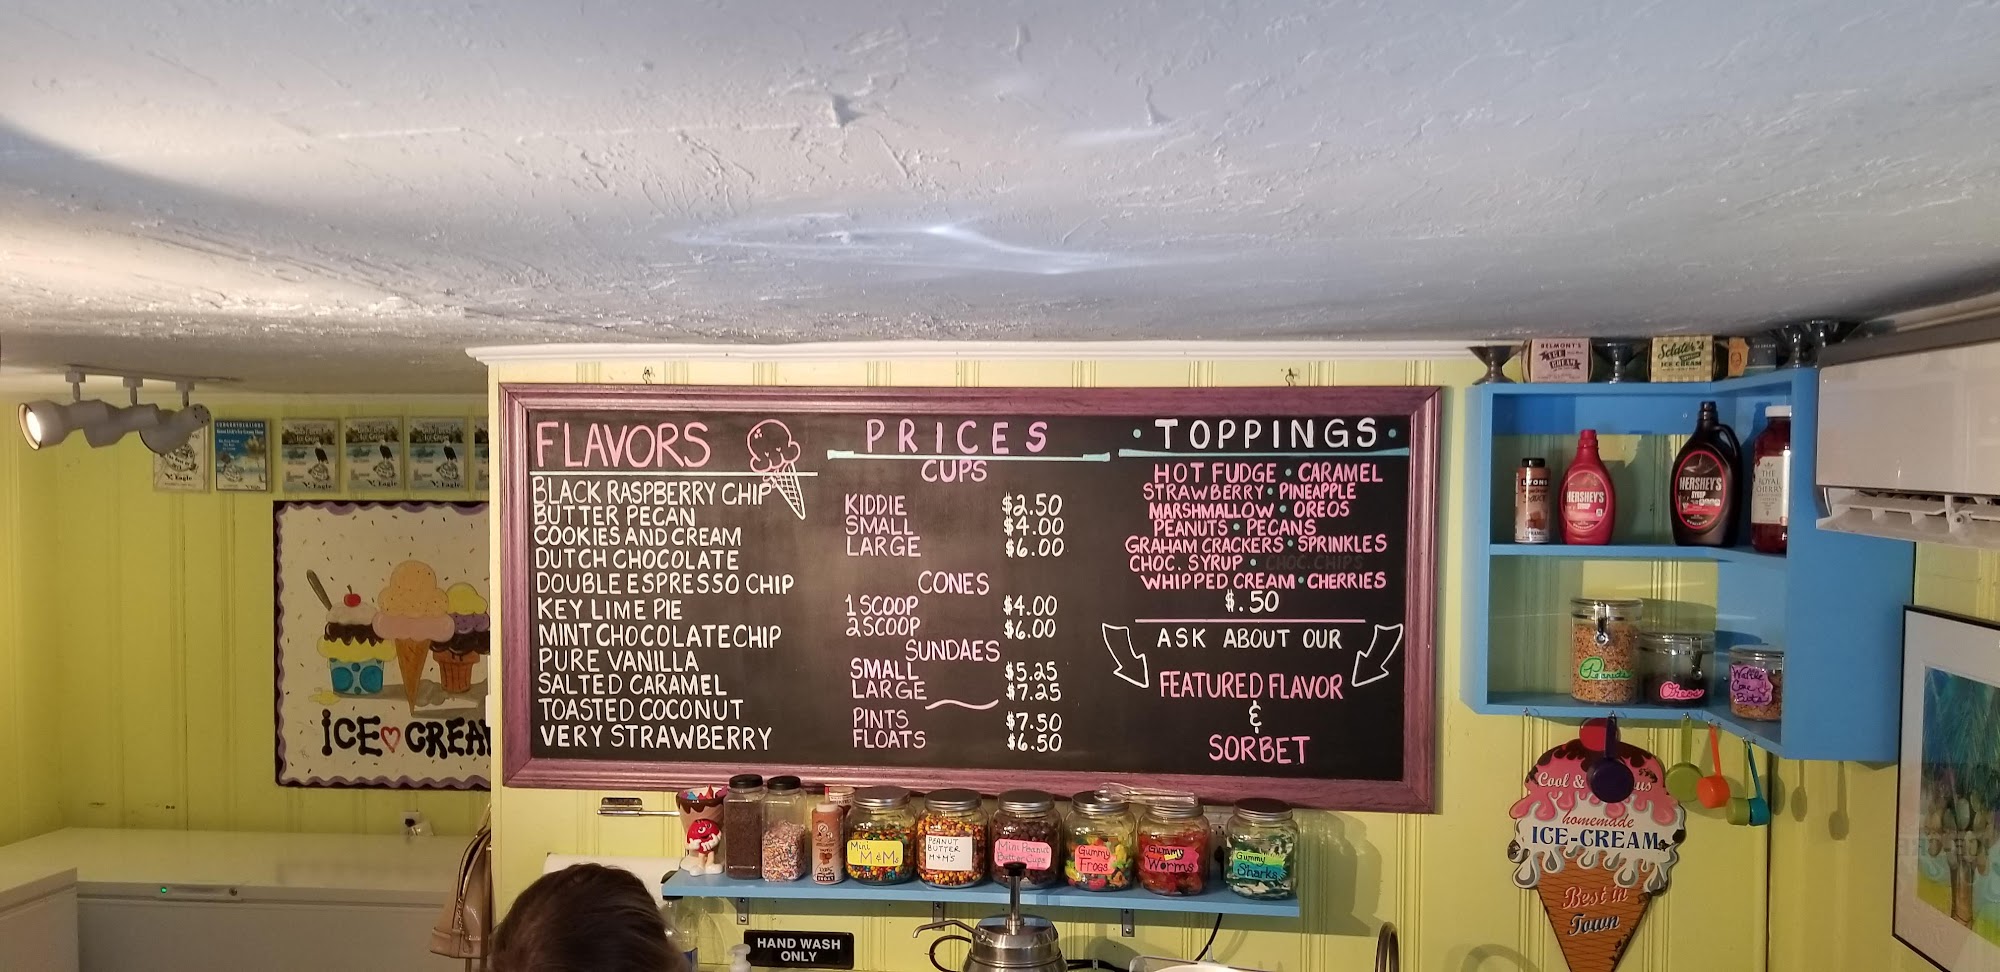 FLAVORS
BLACK RASPBERRY CHIP
BUTTER PECAN
COOKIES AND CREAM
DUTCH CHOCOLATE
DOUBLE ESPRESSO CHIP
KEY LIME PIE
MINT CHOCOLATE CHIP
PURE VANILLA
SALTED CARAMEL
TOASTED COCONUT
VERY STRAWBERRY
PRICES
CUPS
KIDDIE $2.50
SMALL $4.00
LARGE $6.00
CONES
1 SCOOP $4.00
2 SCOOP $6.00
SUNDAES
SMALL $5.25
LARGE $7.25
PINTS $7.50
FLOATS $6.50
• TOPPINGS •
HOT FUDGE • CARAMEL
STRAWBERRY • PINEAPPLE
MARSHMALLOW • OREOS
PEANUTS • PECANS
GRAHAM CRACKERS • SPRINKLES
CHOC. SYRUP • CHOC. CHIPS
WHIPPED CREAM • CHERRIES
$.50
ASK ABOUT OUR
FEATURED FLAVOR
&
SORBET
ICE CREAM
Eagle
Eagle
Eagle
Mini
M&Ms
PEANUT
BUTTER
M&M'S
Mini Peanut
Butter Cups
Gummy
Frogs
Gummy
Worms
Gummy
Sharks
HAND WASH
ONLY
BELMONT'S
ICE
CREAM
Sclater's
ICE CREAM
LYONS
HERSHEY'S
SYRUP
HERSHEY'S
SYRUP
THE
ROYAL
CHERRY
Peanuts
Oreos
Waffle
Cone
Bits
Cool &
homemade
ICE-CREAM
Best in
Town